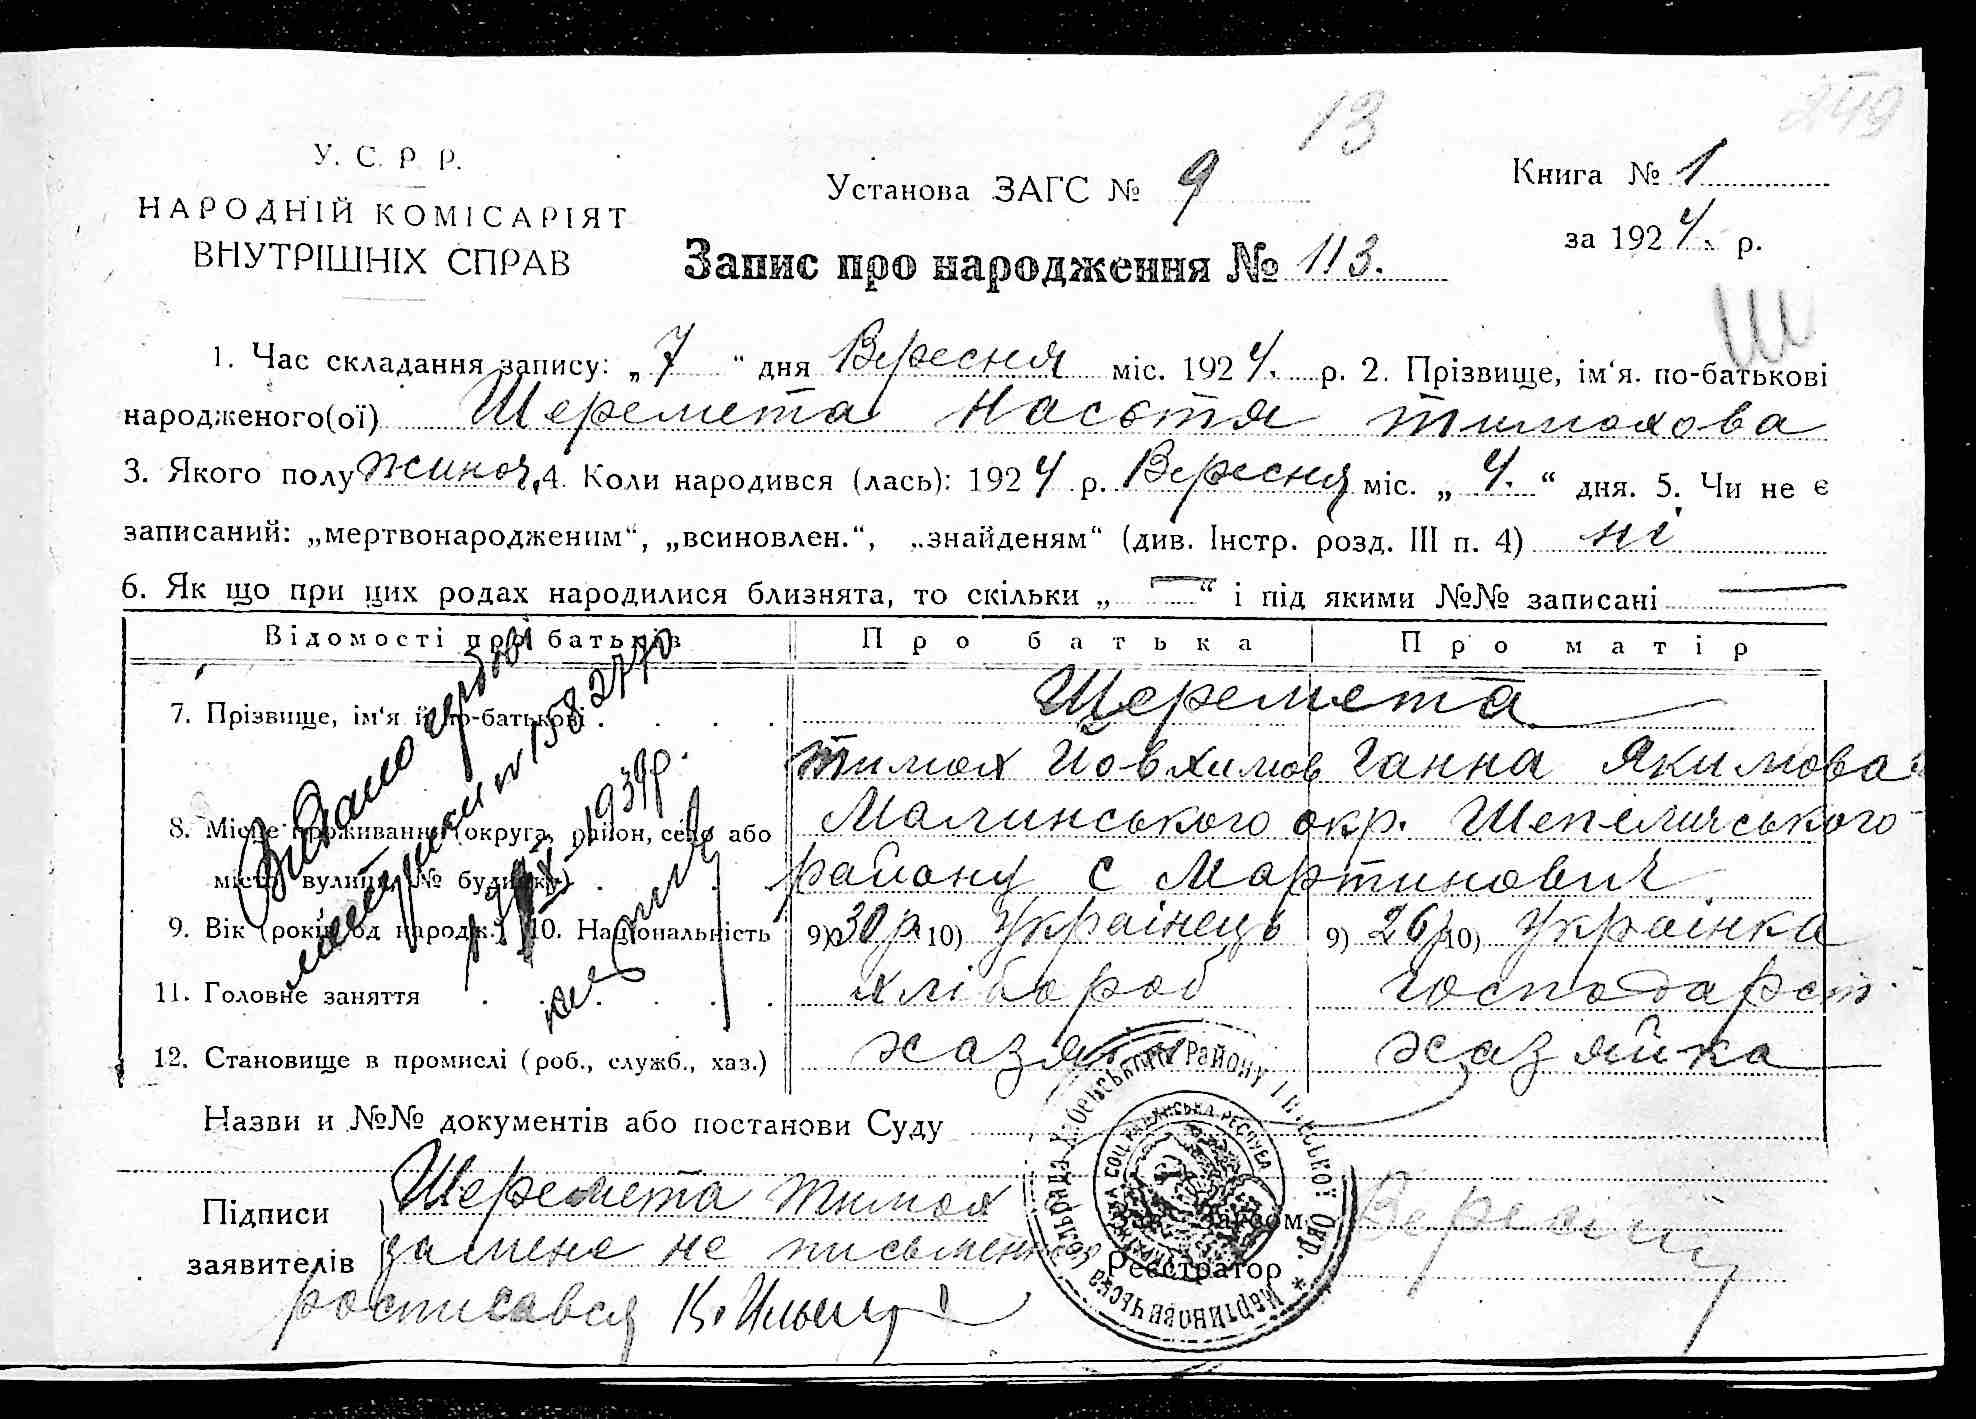 249
13
У. С. Р. Р.
НАРОДНІЙ КОМІСАРІЯТ
ВНУТРІШНІХ СПРАВ
Установа ЗАГС № 9
Книга № 1
за 1924. р.
Запис про народження № 113.
Ш
1. Час складання запису: „7" дня Вересня міс. 1924. р. 2. Прізвище, ім'я. по-батькові
народженого(ої) Шеремета Настя Тимохова
3. Якого полу жиноч. 4. Коли народився (лась): 1924 р. Вересня міс. „4." дня. 5. Чи не є
записаний: „мертвонародженим", „всиновлен.", „знайденям" (див. Інстр. розд. III п. 4) ні
6. Як що при цих родах народилися близнята, то скільки „—" і під якими №№ записані —
Відомості про батьків Про батька Про матір
7. Прізвище, ім'я й по-батькові . . . . Шеремета
Тимох Йовхимов Ганна Якимова
8. Місце проживання (округа, район, село або Малинського окр. Шепелицького
місто, вулиця, № будинку) . . району с Мартинович
9. Вік (років од народж.) 10. Національність 9) 30 р. 10) Украінець 9) 26 р. 10) Украінка
11. Головне заняття . . . . . хлібороб господарст.
12. Становище в промислі (роб., служб., хаз.) хазяін хазяйка
Видано гербові
метрики № 158
1939р.
Назви и №№ документів або постанови Суду
Підписи
заявителів
Шеремета Тимох
за мене не письменного
росписався К. Ильен
Зав. Загсом
Реєстратор
Мартиновичська Сільрада Хабенського Району Київської Окр. *
УКРАЇНСЬКА СОЦ. РАДЯНСЬКА РЕСПУБ.